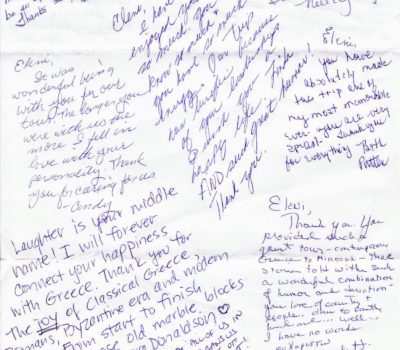 be an
Thanks
Eleni,
I have
enjoyed you
so much. You
know so much &
you have so much
energy. Our trip
was terrific because
of your leadership
I wish you a
happy life. Fresh
AND such great humor!
Thank you.
Eleni,
It was
wonderful being
with you for our
tour. The longer you
were with us the
more I fell in
love with your
personality. Thank
you for caring for us
- Candy
Eleni,
you have
absolutely made
this trip one of
my most memorable
ever you are very
special. Thank you
for everything Beth
Potter
Laughter is your middle
name! I will forever
Connect your happiness
with Greece. Thank you for
The joy of Classical Greece
Romans, Byzantine era and modern
From start to finish
old marble blocks
Donaldson
ALL OF US IN
Eleni,
Thank you. You
provided such a
great tour - contemporary
Greece to Minoans - there
told with such
a wonderful combination
of humor and devotion -
your love of country &
people down to earth
and... well...
I have no words.